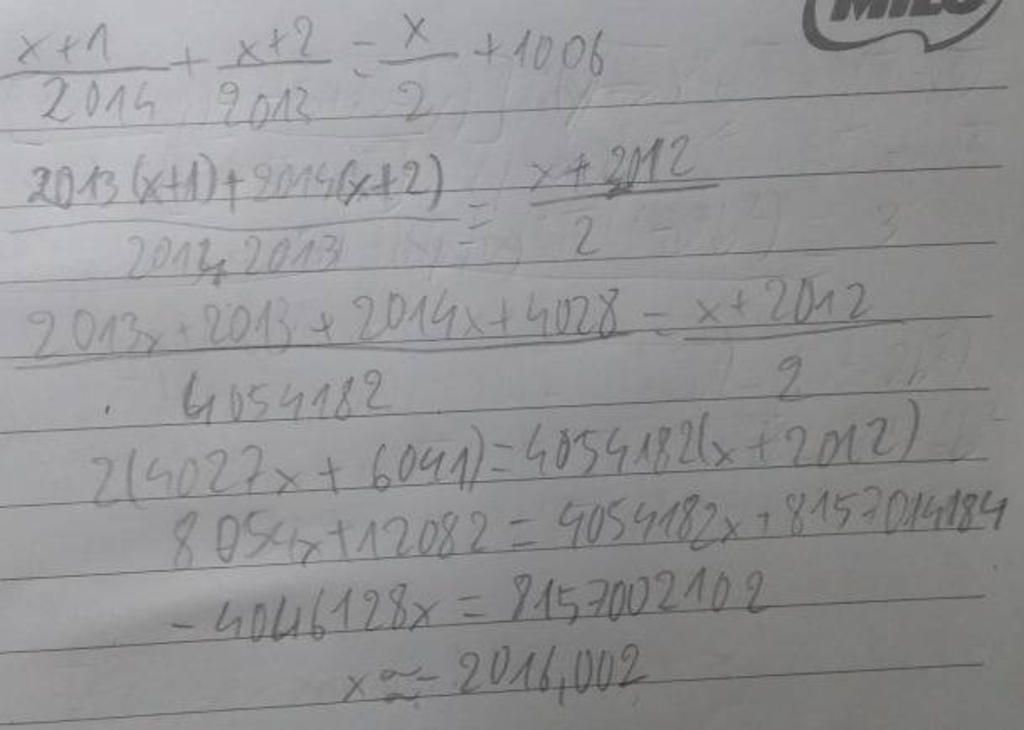 MILO
x+1/2014 + x+2/2013 = x/2 + 1006
2013(x+1)+2014(x+2)/2014·2013 = x+2012/2
2013x+2013+2014x+4028/4054182 = x+2012/2
2(4027x+6041)=4054182(x+2012)
8054x+12082=4054182x+8157014184
-4046128x=8157002102
x≈-2016,002